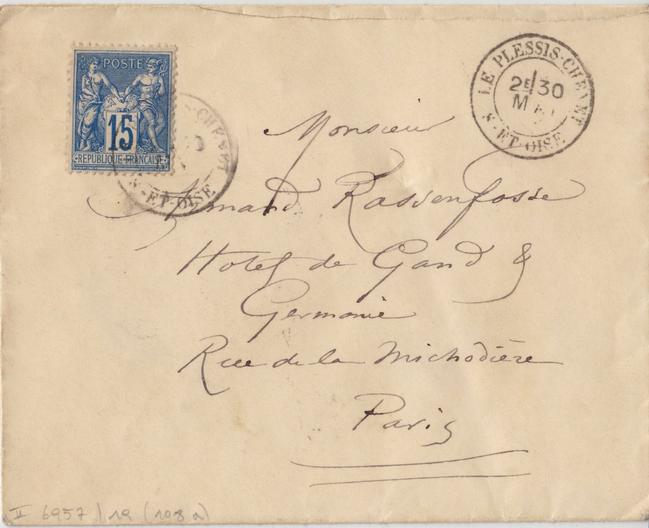 POSTE
15
REPUBLIQUE FRANÇAISE
S.-ET-OISE
LE PLESSIS-CHENET
2E 30
MAI
S.-ET-OISE
Monsieur
Armand Rassenfosse
Hotel de Gand &
Germanie
Rue de la Michodière
Paris
II 6957/19 (108 a)